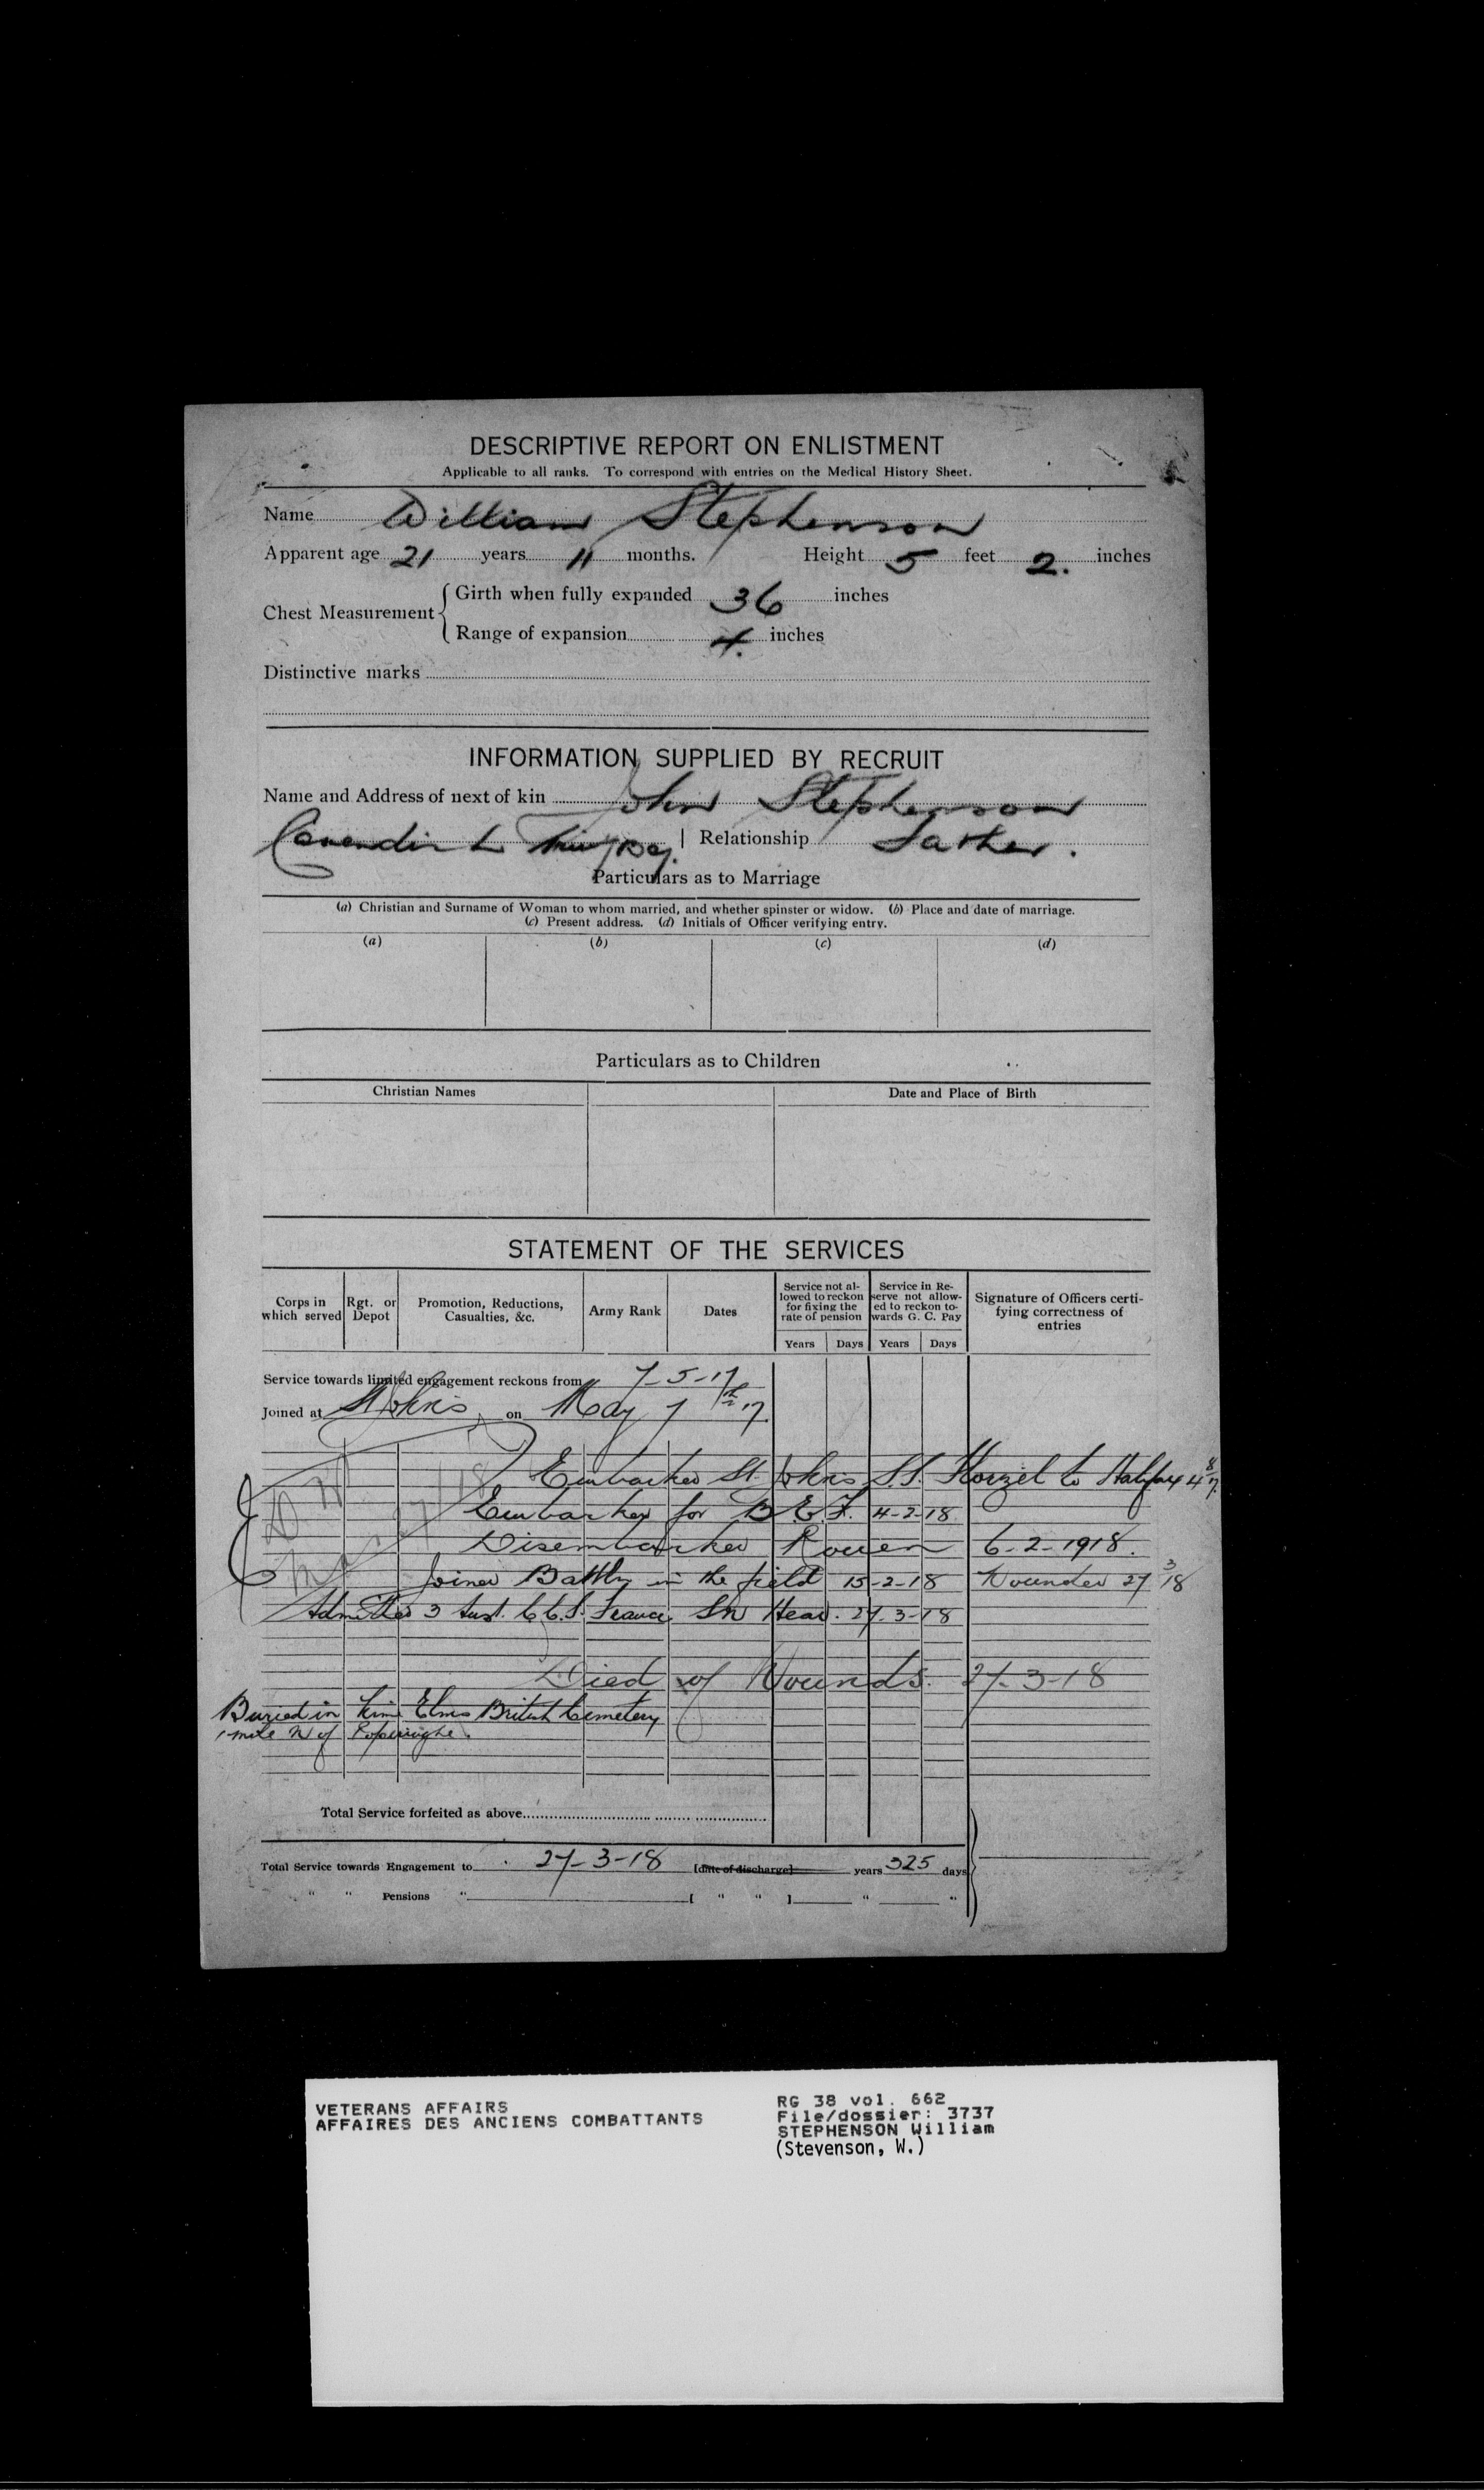 DESCRIPTIVE REPORT ON ENLISTMENT
Applicable to all ranks. To correspond with entries on the Medical History Sheet.
Name William Stephenson
Apparent age 21 years 11 months. Height 5 feet 2. inches
Chest Measurement { Girth when fully expanded 36 inches
Range of expansion 4. inches
Distinctive marks
INFORMATION SUPPLIED BY RECRUIT
Name and Address of next of kin John Stephenson
Cavendish Bay. | Relationship Father.
Particulars as to Marriage
(a) Christian and Surname of Woman to whom married, and whether spinster or widow. (b) Place and date of marriage.
(c) Present address. (d) Initials of Officer verifying entry.
(a) (b) (c) (d)
Particulars as to Children
Christian Names Date and Place of Birth
STATEMENT OF THE SERVICES
Corps in which served Rgt. or Depot Promotion, Reductions, Casualties, &c. Army Rank Dates Service not allowed to reckon for fixing the rate of pension Service in Reserve not allowed to reckon towards G. C. Pay Signature of Officers certifying correctness of entries
Years Days Years Days
Service towards limited engagement reckons from 7-5-17
Joined at St Johns on May 7th 17.
Embarked St. Johns S.S. Florizel to Halifax 4 8/17
Embarked for B.E.F. 4-2-18
Disembarked Rouen 6-2-1918.
Joined Battln in the field 15-2-18 Wounded 27/3/18
Admitted 3 Aust. C.C.S. France SW Head. 27.3-18
Died of Wounds. 27-3-18
Buried in Lime Elms British Cemetery
1 mile N of Poperinghe.
Total Service forfeited as above
Total Service towards Engagement to 27-3-18 [date of discharge] years 325 days
" " Pensions " [ " " ] " "
VETERANS AFFAIRS
AFFAIRES DES ANCIENS COMBATTANTS
RG 38 vol. 662
File/dossier: 3737
STEPHENSON William
(Stevenson, W.)